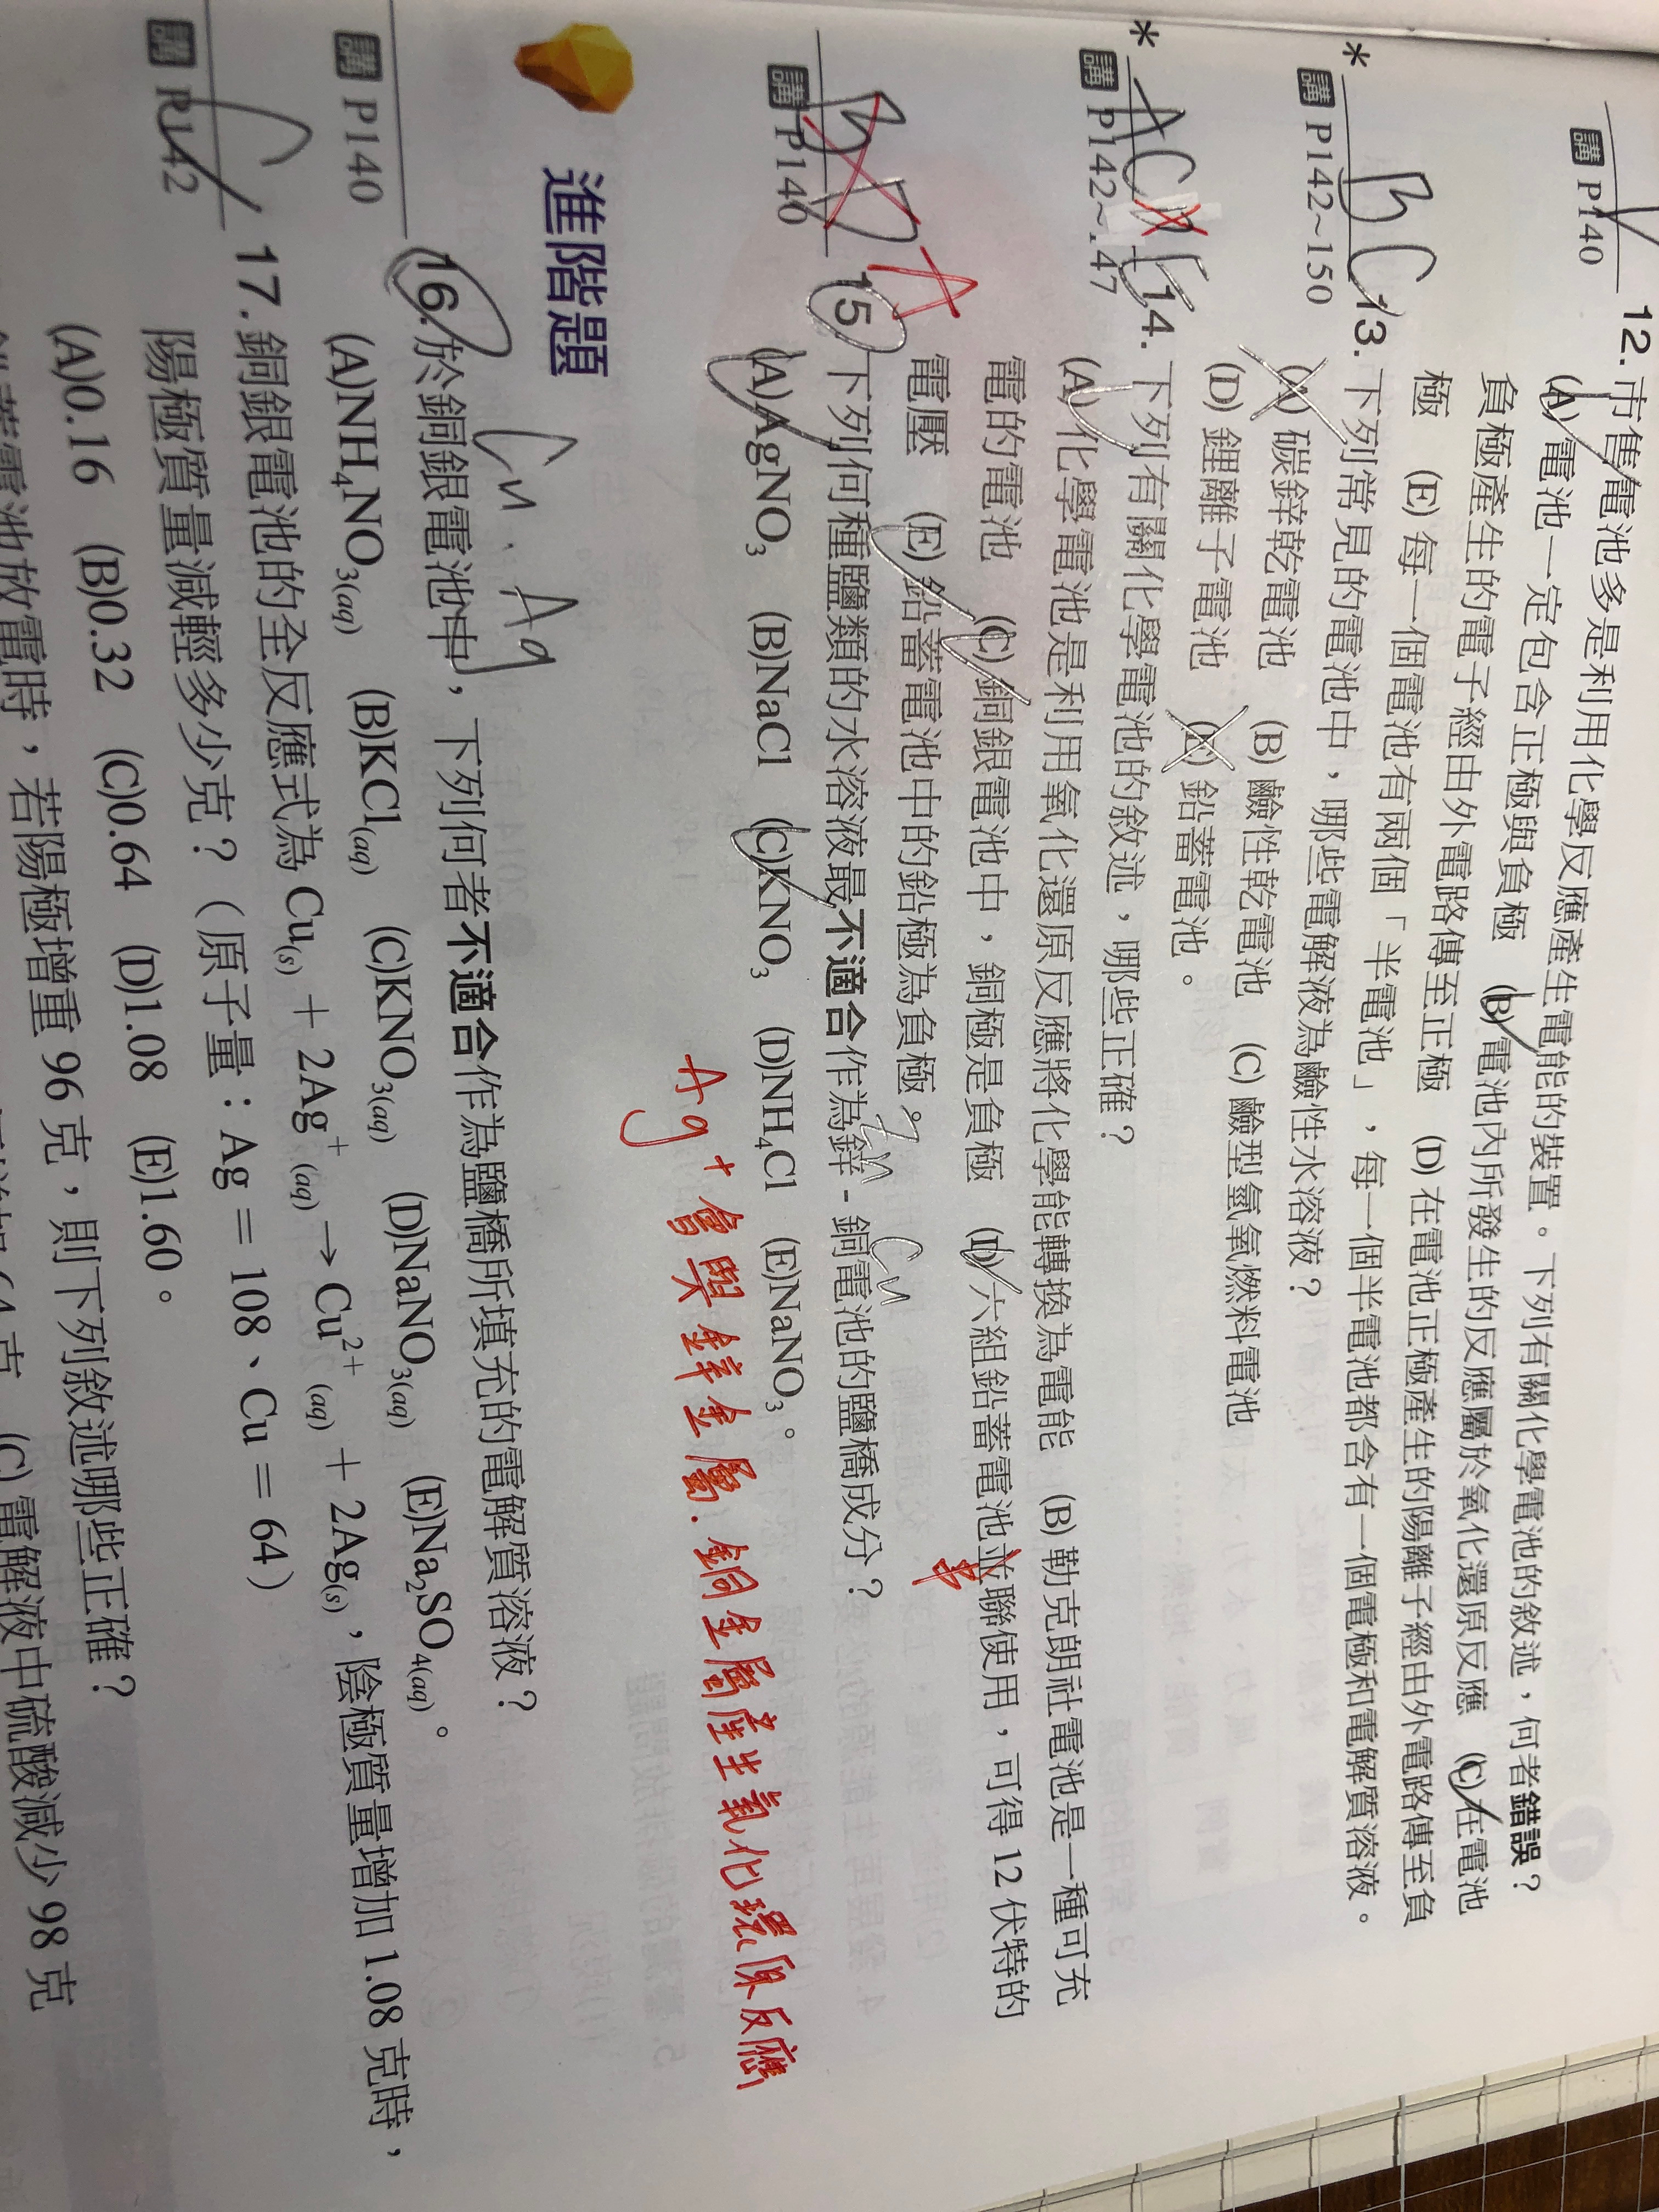 講 P140
12.市售電池多是利用化學反應產生電能的裝置。下列有關化學電池的敘述，何者錯誤？
(A)電池一定包含正極與負極 (B)電池內所發生的反應屬於氧化還原反應 (C)在電池
負極產生的電子經由外電路傳至正極 (D)在電池正極產生的陽離子經由外電路傳至負
極 (E)每一個電池有兩個「半電池」，每一個半電池都含有一個電極和電解質溶液。
* BC 13.下列常見的電池中，哪些電解液為鹼性水溶液？
講 P142~150
(A)碳鋅乾電池 (B)鹼性乾電池 (C)鹼型氫氧燃料電池
(D)鋰離子電池 (E)鉛蓄電池。
* ACDE 14.下列有關化學電池的敘述，哪些正確？
講 P142~147
(A)化學電池是利用氧化還原反應將化學能轉換為電能 (B)勒克朗社電池是一種可充
電的電池 (C)銅銀電池中，銅極是負極 (D)六組鉛蓄電池並聯使用，可得 12 伏特的
串
電壓 (E)鉛蓄電池中的鉛極為負極。
A
Zn Cu
15.下列何種鹽類的水溶液最不適合作為鋅-銅電池的鹽橋成分？
講 P140
(A)AgNO₃ (B)NaCl (C)KNO₃ (D)NH₄Cl (E)NaNO₃。
Ag⁺會與鋅金屬.銅金屬產生氧化還原反應
進階題
Cu Ag
16.於銅銀電池中，下列何者不適合作為鹽橋所填充的電解質溶液？
講 P140
(A)NH₄NO₃(aq) (B)KCl(aq) (C)KNO₃(aq) (D)NaNO₃(aq) (E)Na₂SO₄(aq)。
C 17.銅銀電池的全反應式為 Cu(s) + 2Ag⁺(aq) → Cu²⁺(aq) + 2Ag(s)，陰極質量增加 1.08 克時，
講 P142
陽極質量減輕多少克？（原子量：Ag = 108、Cu = 64）
(A)0.16 (B)0.32 (C)0.64 (D)1.08 (E)1.60。
電池放電時，若陽極增重 96 克，則下列敘述哪些正確？
64 克 (C)電解液中硫酸減少 98 克